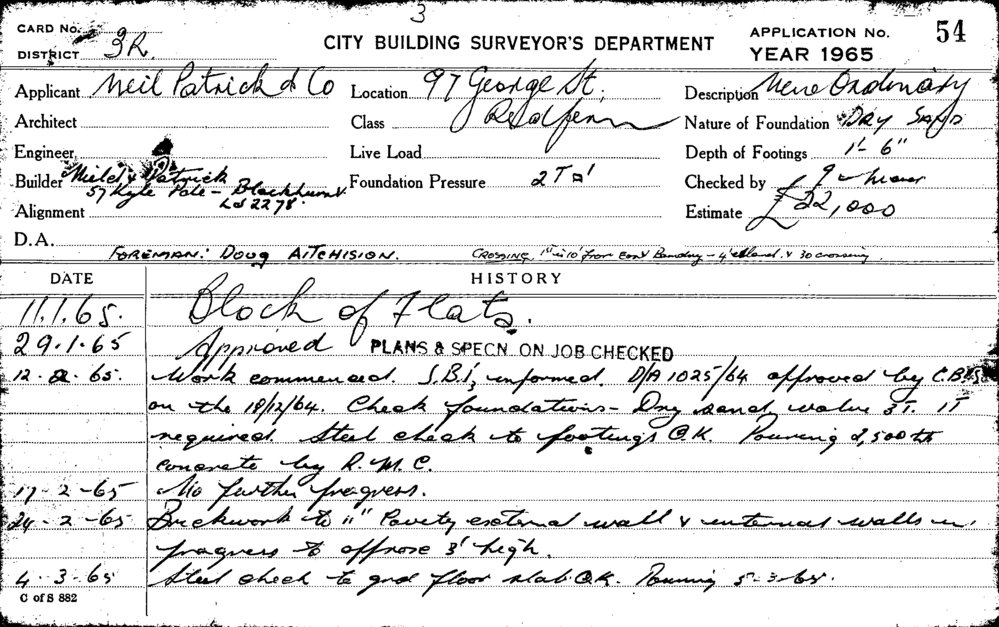 3
CARD No.
DISTRICT 3R.
CITY BUILDING SURVEYOR'S DEPARTMENT
APPLICATION No. 54
YEAR 1965
Applicant Neil Patrick & Co
Location 97 George St.
Redfern
Description New Ordinary
Architect
Class
Nature of Foundation DRY SAND
Engineer
Live Load
Depth of Footings 1'-6"
Builder Patrick
57 Kyle Pde - Blackhurst
LJ 2278
Foundation Pressure 2T
Checked by
Alignment
Estimate £22,000
D.A.
FOREMAN: DOUG AITCHISION.
CROSSING, from East Bandry - & 30 crossing
DATE
HISTORY
11.1.65. Block of Flats.
29.1.65 Approved PLANS & SPECN. ON JOB CHECKED
12.2.65. Work commenced. S.B.I. informed. D/A 1025/64 approved by C.B.S.
on the 18/12/64. Check foundations - Dry sand value 3T. 1T
required. Steel check to footings O.K. Pouring 2,500 lb
concrete by R.M.C.
17-2-65 No further progress.
24-2-65 Brickwork to 11" Cavity external wall & internal walls in
progress to approx 3' high.
4.3.65 Steel check to grd floor slab O.K. Pouring 5-3-65.
C of S 882